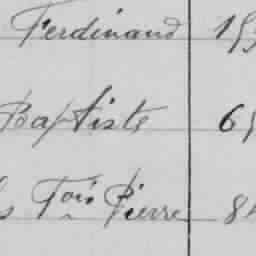 Ferdinand 15
Baptiste 65
s Fois Pierre 8